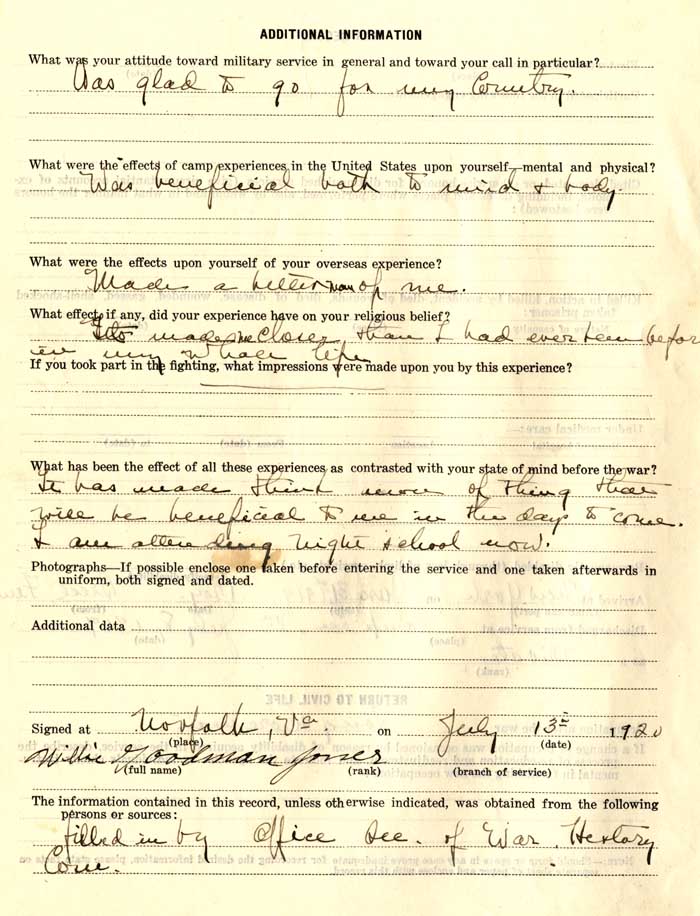 ADDITIONAL INFORMATION
What was your attitude toward military service in general and toward your call in particular?
Was glad to go for my Country.
What were the effects of camp experiences in the United States upon yourself—mental and physical?
Was beneficial both to mind & body.
What were the effects upon yourself of your overseas experience?
Made a better man of me.
What effect, if any, did your experience have on your religious belief?
made me closer, than I had ever been befor
in my whole life
If you took part in the fighting, what impressions were made upon you by this experience?
What has been the effect of all these experiences as contrasted with your state of mind before the war?
It has made think more of thing that
will be beneficial to me in the days to come.
I am attending night school now.
Photographs—If possible enclose one taken before entering the service and one taken afterwards in
uniform, both signed and dated.
Additional data
Signed at Norfolk, Va. on July 13th 1920
(place) (date)
Willie Goodman Jones
(full name) (rank) (branch of service)
The information contained in this record, unless otherwise indicated, was obtained from the following
persons or sources:
Filled in by Office Sec. of War History
Com.